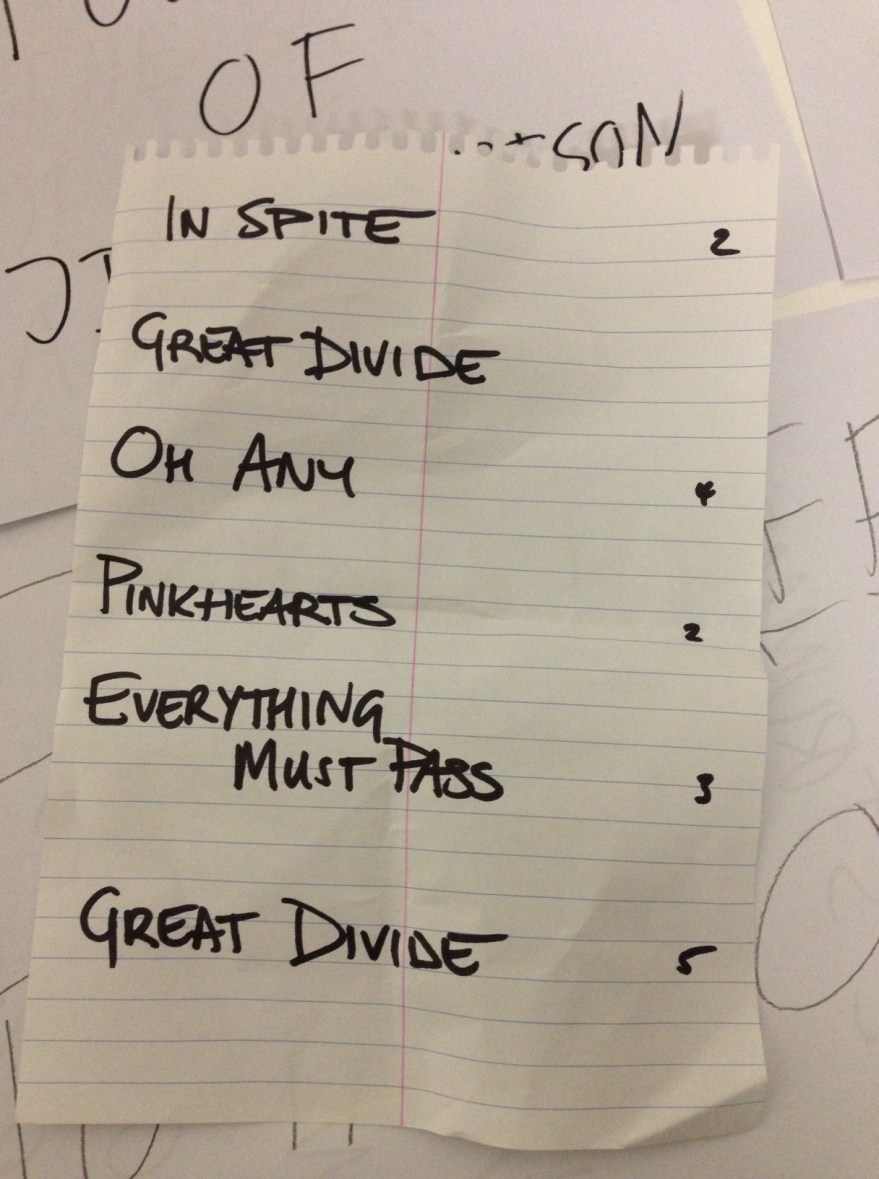 OF
SON
IN SPITE 2
GREAT DIVIDE
OH ANY 4
PINKHEARTS 2
EVERYTHING
MUST PASS 3
GREAT DIVIDE 5